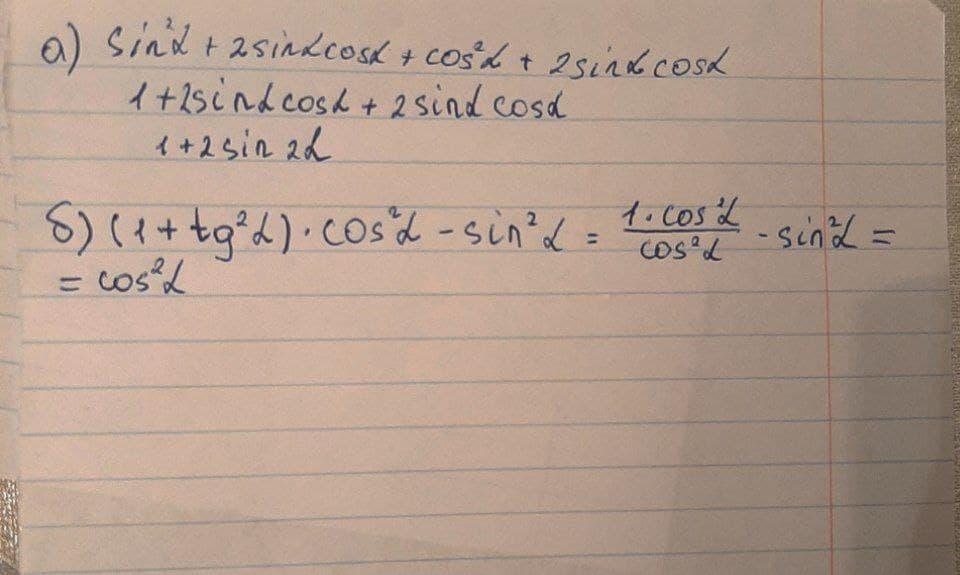 а) sin²α + 2sinαcosα + cos²α + 2sinαcosα
1+2sinαcosα + 2sinαcosα
1+2sin2α
б) (1+tg²α)·cos²α - sin²α = \frac{1·cos²α}{cos²α} - sin²α =
= cos²α